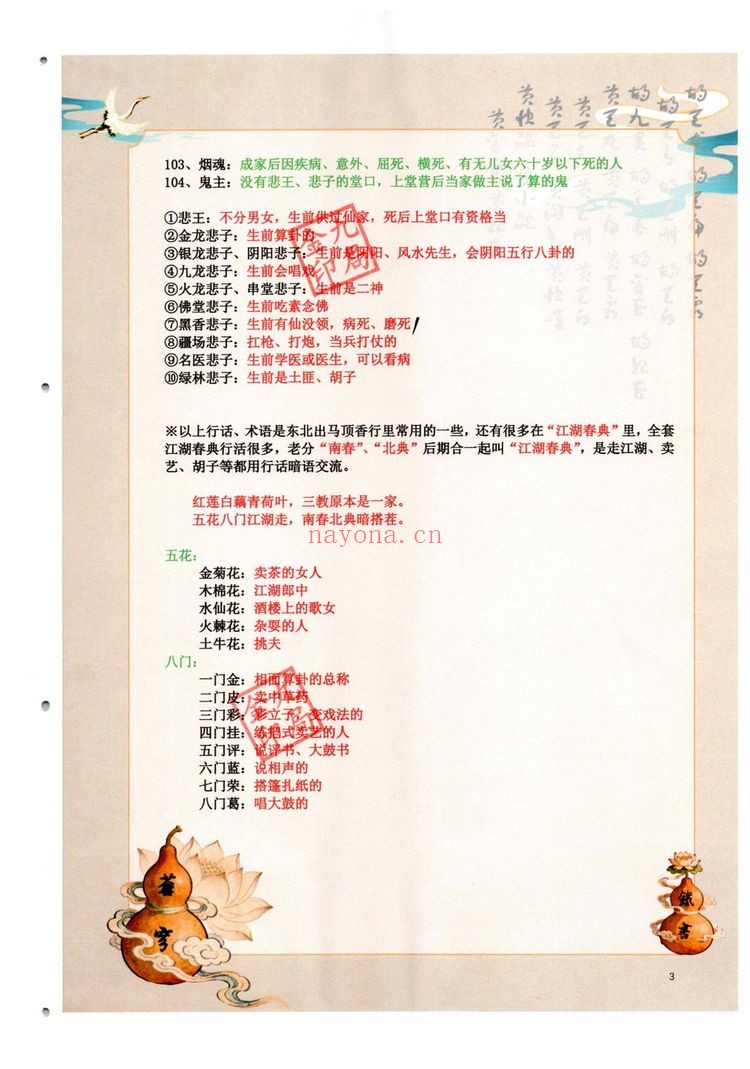 103、烟魂：成家后因疾病、意外、屈死、横死、有无儿女六十岁以下死的人
104、鬼主：没有悲王、悲子的堂口，上堂营后当家做主说了算的鬼
①悲王：不分男女，生前供过仙家，死后上堂口有资格当
②金龙悲子：生前算卦的
③银龙悲子、阴阳悲子：生前是阴阳、风水先生，会阴阳五行八卦的
④九龙悲子：生前会唱戏
⑤火龙悲子、串堂悲子：生前是二神
⑥佛堂悲子：生前吃素念佛
⑦黑香悲子：生前有仙没领，病死、磨死
⑧疆场悲子：扛枪、打炮，当兵打仗的
⑨名医悲子：生前学医或医生，可以看病
⑩绿林悲子：生前是土匪、胡子
※以上行话、术语是东北出马顶香行里常用的一些，还有很多在“江湖春典”里，全套
江湖春典行活很多，老分“南春”、“北典”后期合一起叫“江湖春典”，是走江湖、卖
艺、胡子等都用行话暗语交流。
红莲白藕青荷叶，三教原本是一家。
五花八门江湖走，南春北典暗搭茬。
nayona.cn
五花：
金菊花：卖茶的女人
木棉花：江湖郎中
水仙花：酒楼上的歌女
火棘花：杂耍的人
土牛花：挑夫
八门：
一门金：相面算卦的总称
二门皮：卖中草药
三门彩：彩立子、变戏法的
四门挂：练把式卖艺的人
五门评：说评书、大鼓书
六门蓝：说相声的
七门荣：搭篷扎纸的
八门葛：唱大鼓的
蒼穹
鐵書
3